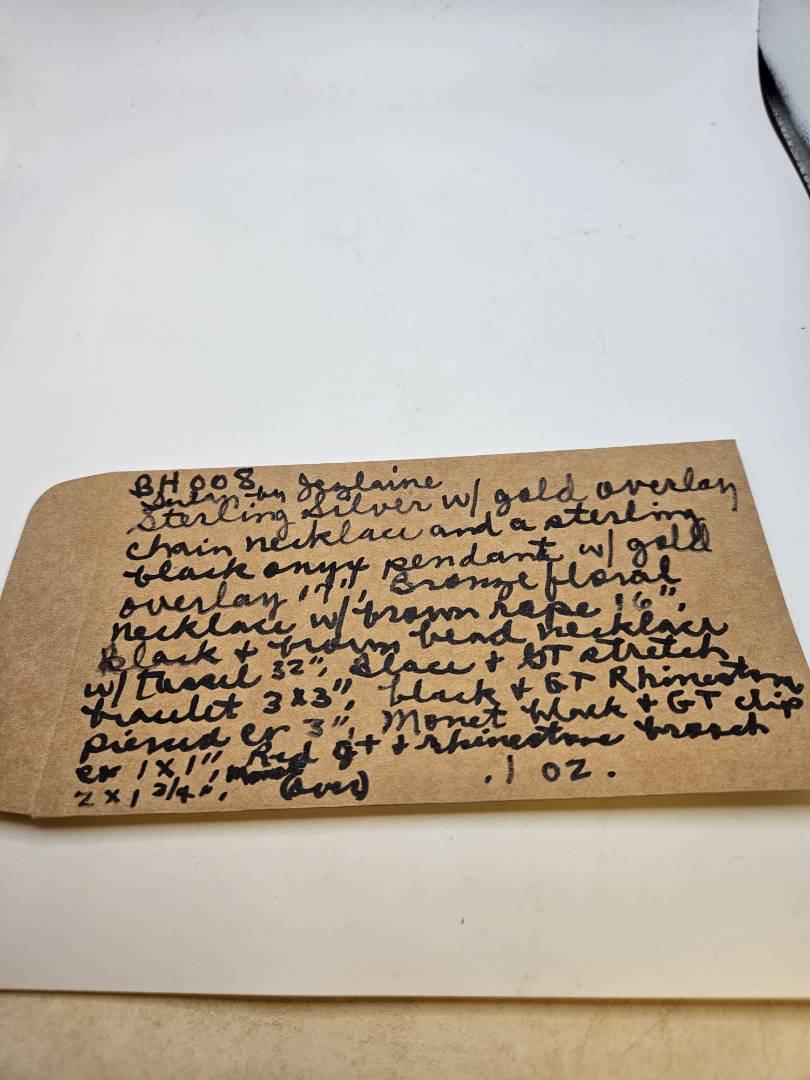 BH008
by Jezlaine
Sterling Silver w/ gold overlay
chain necklace and a sterling
black onyx pendant w/ gold
overlay 17", Bronze floral
necklace w/ brown rope 16",
Black + brown bead necklace
w/ tassel 32", Black + GT stretch
bracelet 3x3", black + GT Rhinestone
pierced er 3", Monet black + GT clip
er 1x1", Red gt + rhinestone brooch
2 x 1 3/4", (over) .1 oz.